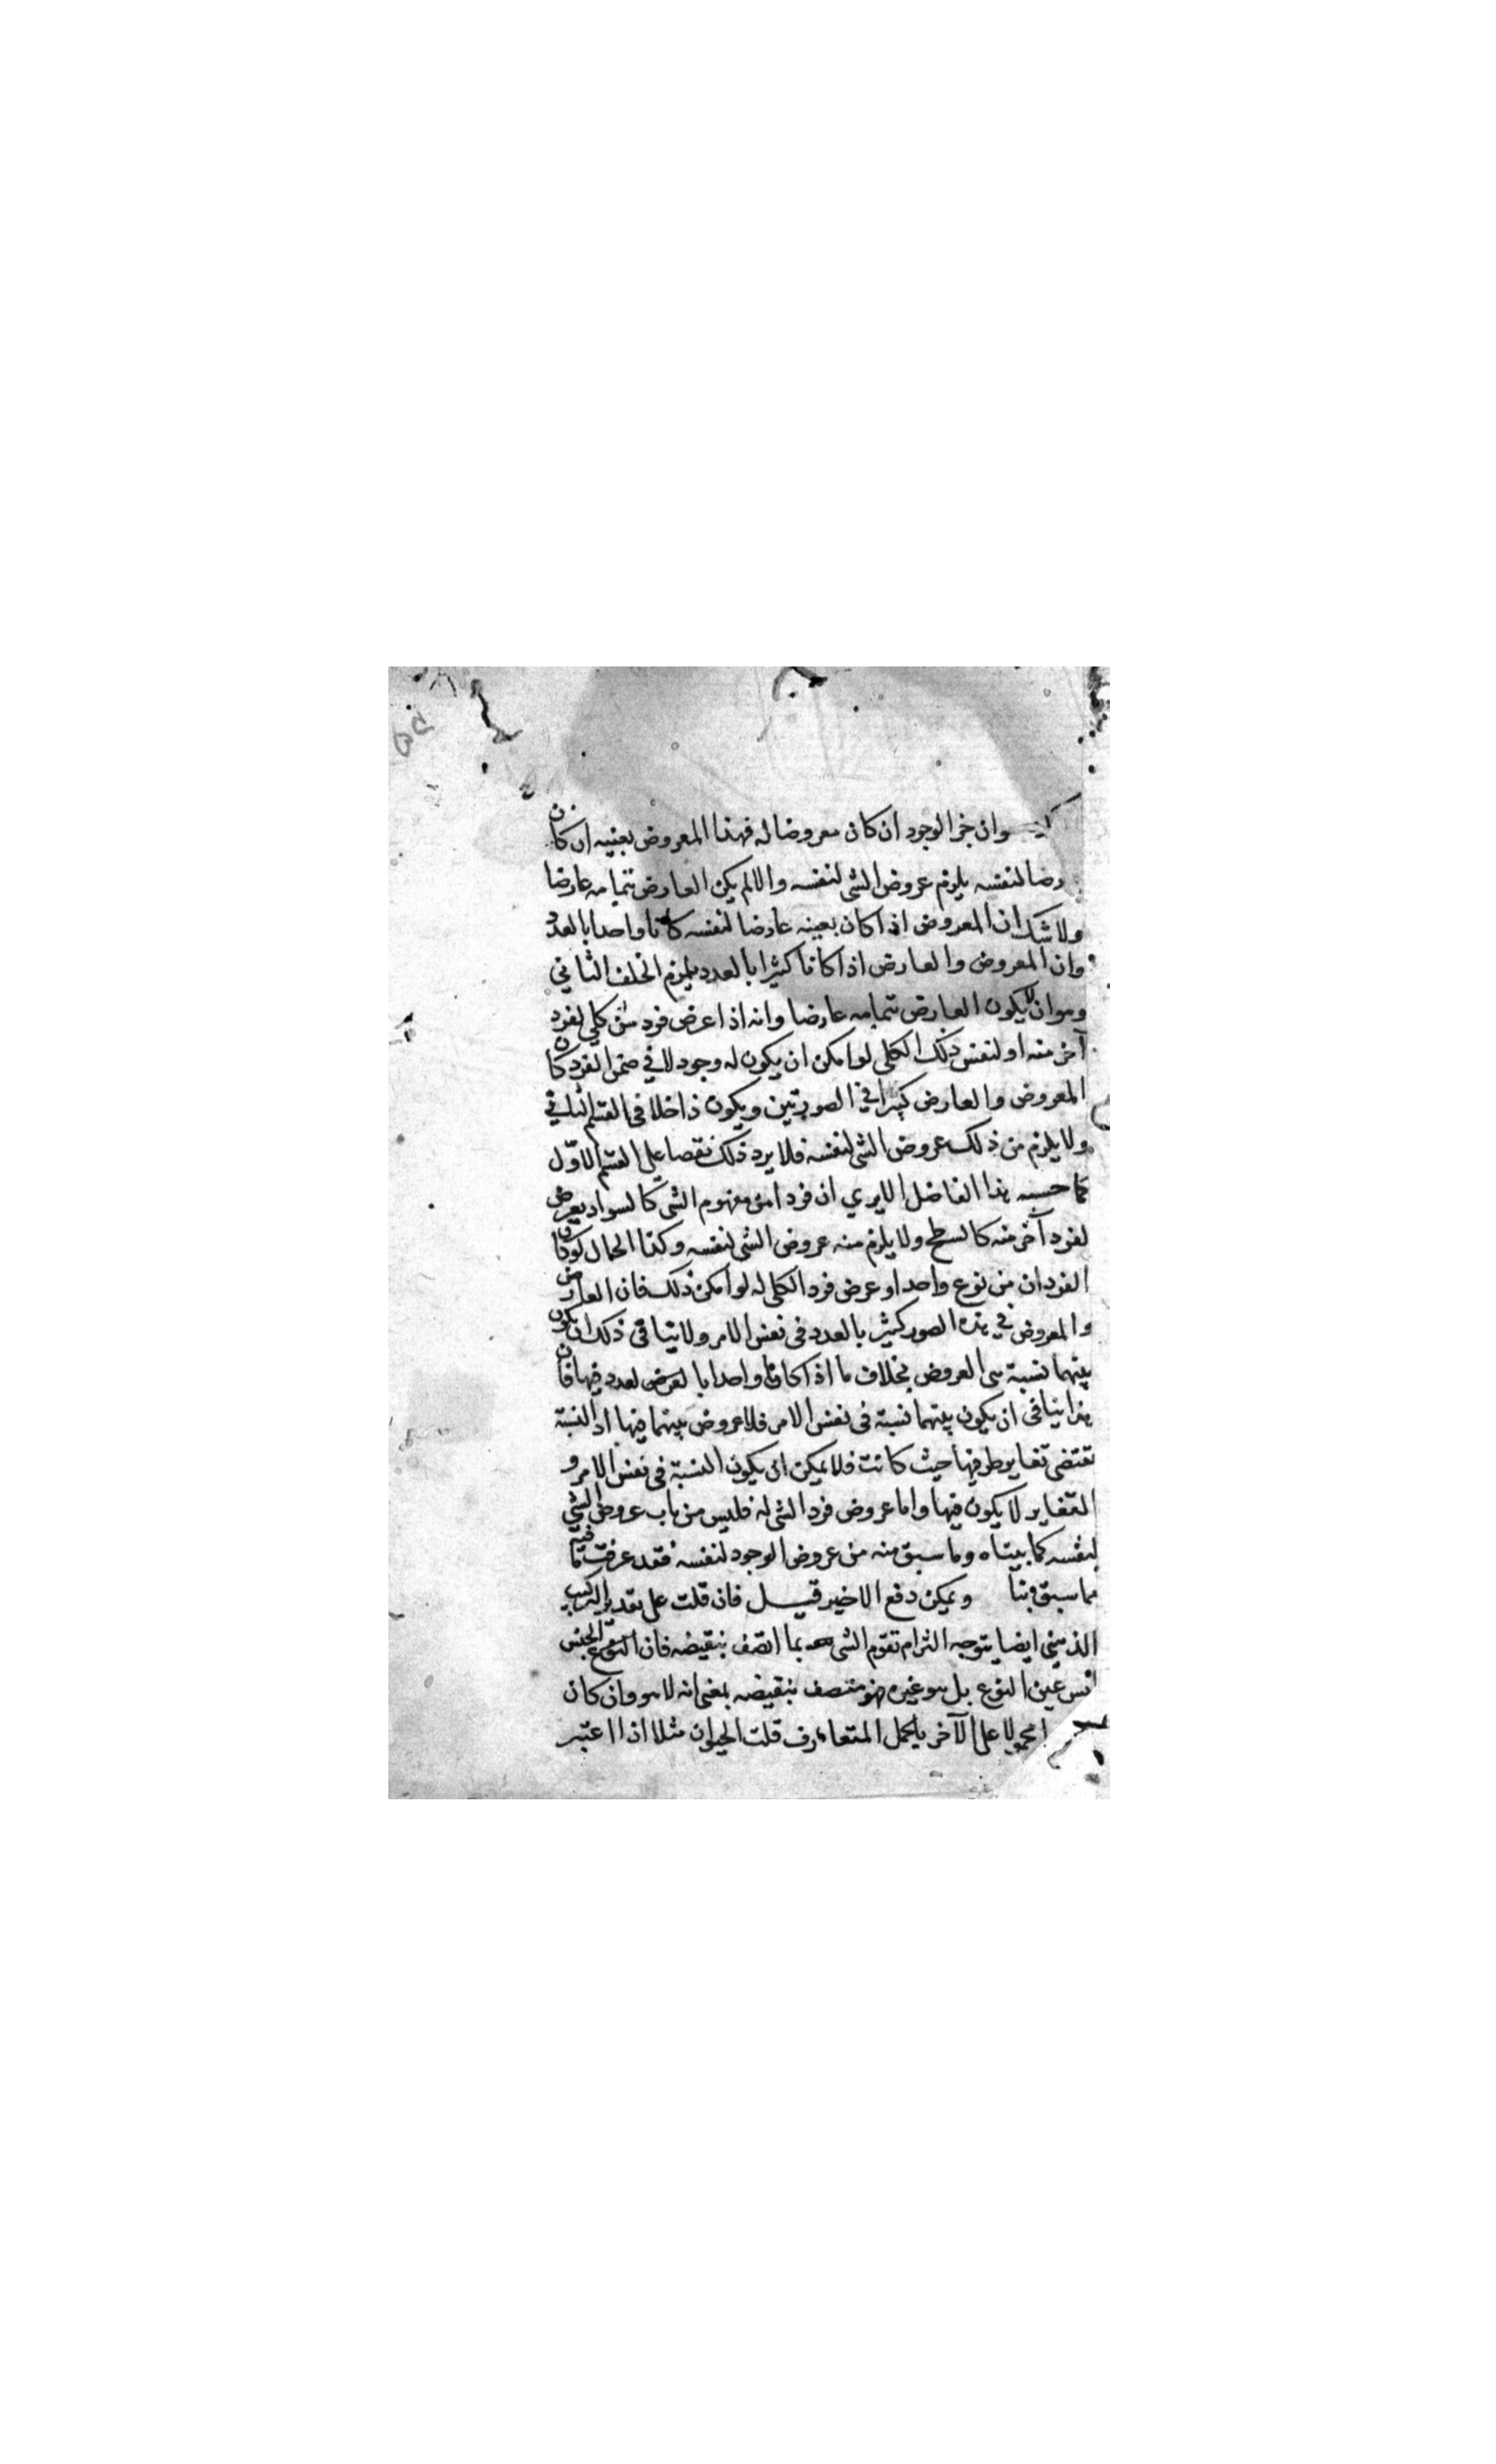 وان جزء الوجود ان كان معروضا له فهذا المعروض بعينه ان كان
رضا لنفسه يلزم عروض الشئ لنفسه والا لم يكن العارض بتمامه عارضا
ولا شك ان المعروض اذا كان بعينه عارضا لنفسه كانا واحدا بالعدد
وان المعروض والعارض اذا كانا كثيرا بالعدد يلزم الخلف الثاني
وهو ان لا يكون العارض بتمامه عارضا وانه اذا عرض فرد من كلي لفرد
آخر منه او لنفس ذلك الكلى لو امكن ان يكون له وجود لا في ضمن الفرد كان
المعروض والعارض كثيرا في الصورتين ويكون داخلا فى القسم الثاني
ولا يلزم من ذلك عروض الشئ لنفسه فلا يرد ذلك نقضا على القسم الاوّل
كما حسبه هذا الفاضل الا يري ان فردا من مفهوم الشئ كالسواد يعرض
لفرد آخر منه كالسطح ولا يلزم منه عروض الشئ لنفسه وكذا الحال لو كان
الفردان من نوع واحد او عرض فرد الكلى له لو امكن ذلك فان العارض
والمعروض في هذه الصور كثير بالعدد فى نفس الامر ولا ينافى ذلك ان يكون
بينهما نسبة هى العروض بخلاف ما اذا كانا واحدا بالعدد فيها فان
هذا ينافى ان يكون بينهما نسبة فى نفس الامر فلا عروض بينهما فيها اذ النسبة
تقتضى تغاير طرفيها حيث كانت فلا يمكن ان يكون النسبة فى نفس الامر و
التغاير لا يكون فيها واما عروض فرد الشئ له فليس من باب عروض الشئ
لنفسه كما بيناه وما سبق منه من عروض الوجود لنفسه فقد عرفت ما فيه
مما سبق منا ويمكن دفع الاخير قيل فان قلت على تقدير التركيب
الذهني ايضا يتوجه التزام تقوم الشئ بما اتصف بنقيضه فان الجنس
ليس عين النوع بل هو غيره فهو متصف بنقيضه بمعنى انه لا هو وان كان
محمولا على الآخر بالحمل المتعارف قلت الحيوان مثلا اذا اعتبر